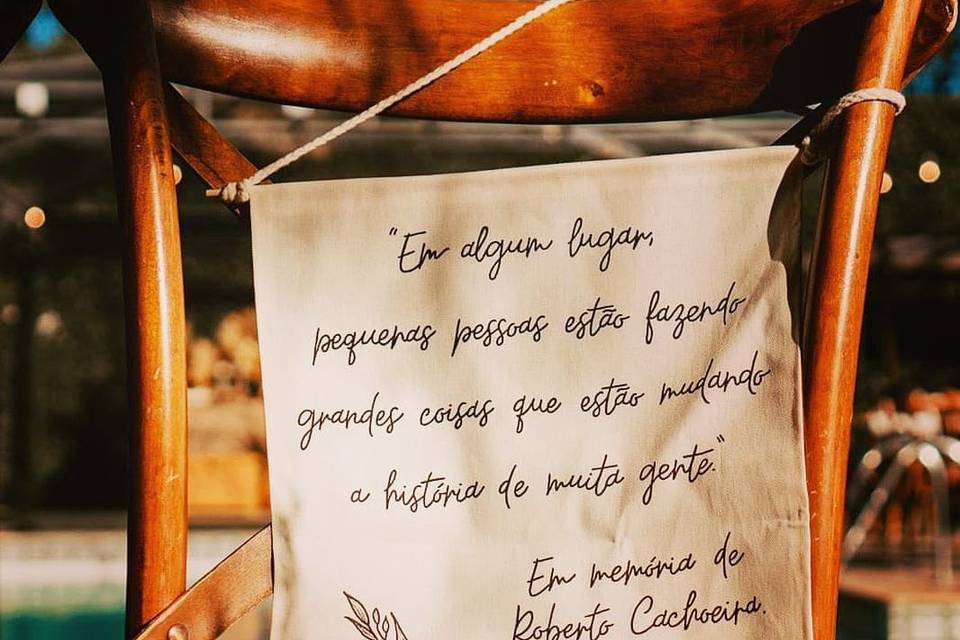 "Em algum lugar,
pequenas pessoas estão fazendo
grandes coisas que estão mudando
a história de muita gente."
Em memória de
Roberto Cachoeira.